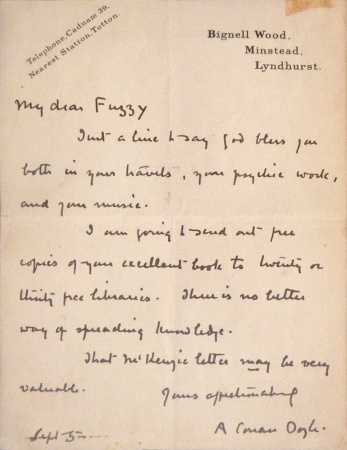 Telephone, Cadnam 39.
Nearest Station, Totton.
Bignell Wood,
Minstead,
Lyndhurst.
My dear Fuzzy
Just a line to say God bless you
both in your travels, your psychic work,
and your music.
I am going to send out free
copies of your excellent book to twenty or
thirty free libraries. There is no better
way of spreading knowledge.
That McKenzie letter may be very
valuable.
Yours affectionately
A Conan Doyle.
Sept 5